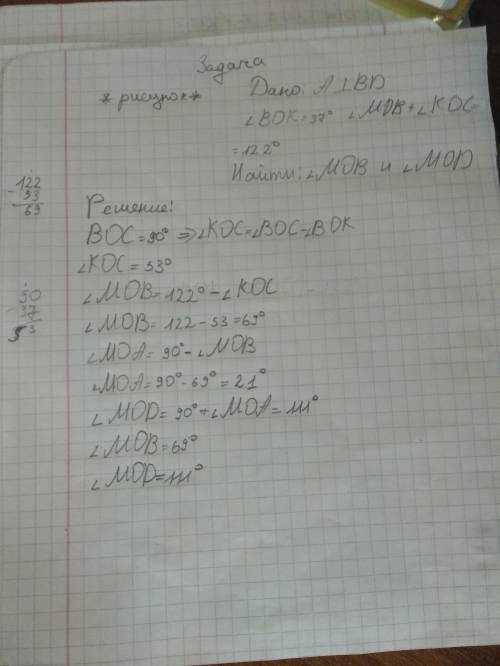 Задача
*рисунок*
Дано: A⊥BD
∠BOK=37° ∠MOB+∠KOC=
=122°
Найти: ∠MOB и ∠MOD
122
- 53
69
Решение:
BOC=90° ⇒ ∠KOC=∠BOC-∠BOK
∠KOC=53°
90
- 37
53
∠MOB=122°-∠KOC
∠MOB=122-53=69°
∠MOA=90°-∠MOB
∠MOA=90°-69°=21°
∠MOD=90°+∠MOA=111°
∠MOB=69°
∠MOD=111°